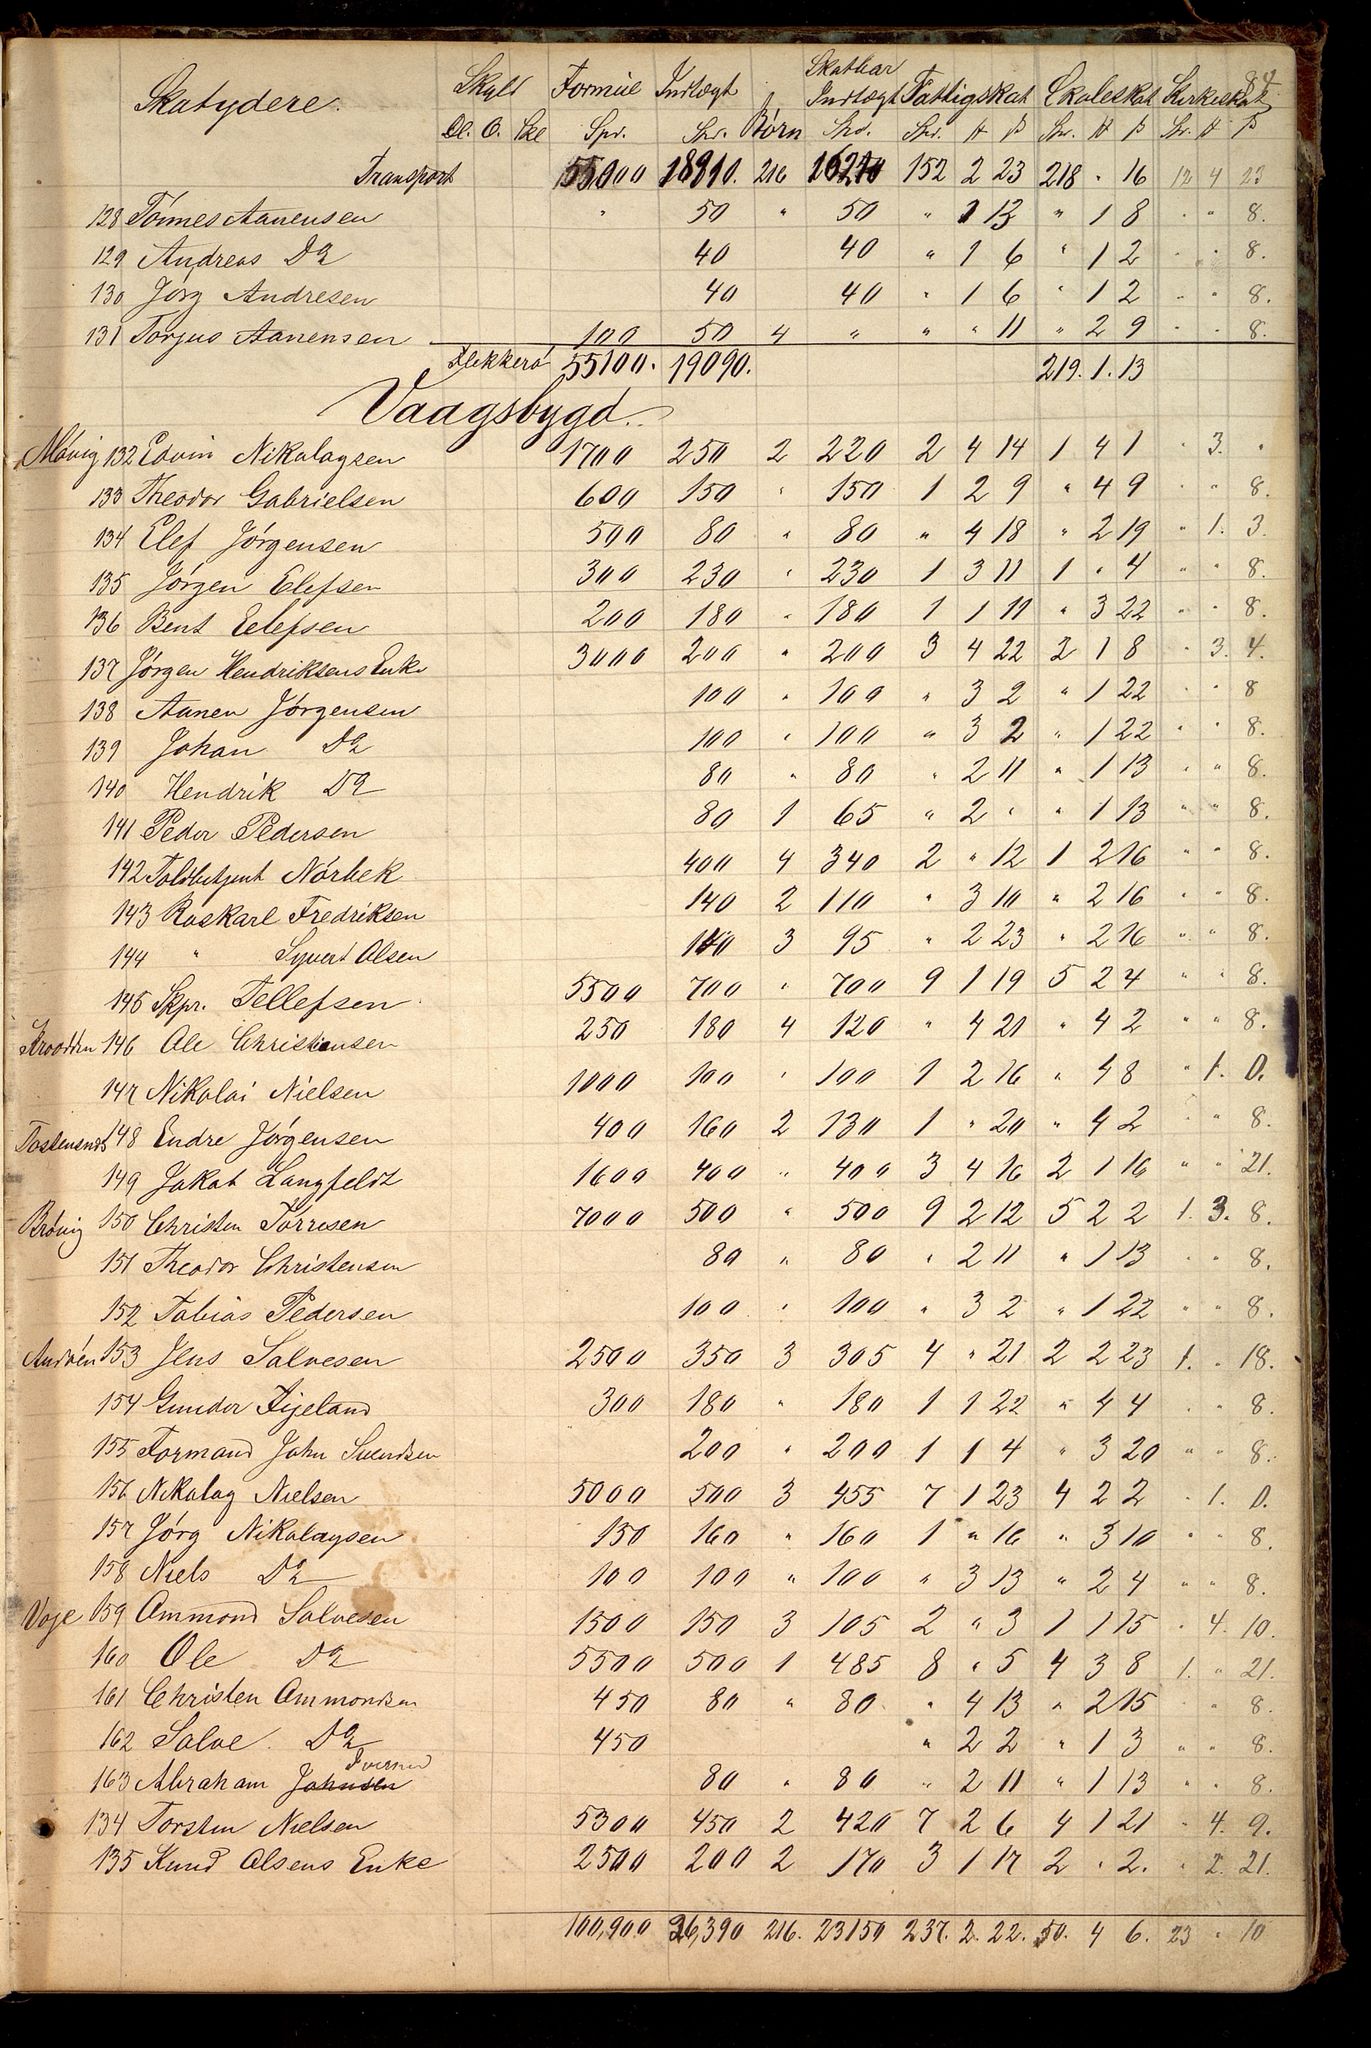 84.
Skatydere. Skyld Formue Indtægt Børn Skatbar Indtægt Fattigskat Skoleskat Kirkeskat
Dl. O. Skl Spd. Spd. Spd. Spd. # β Spd. # β Spd. # β
Transport 55000 18910. 216 16240 152 2 23 218 " 16 12 4 23
128 Tønnes Aanensen " 50 " 50 " 1 13 " 1 8 " " 8.
129 Andreas Do 40 40 " 1 6 " 1 2 " " 8.
130 Jørg Andresen 40 40 " 1 6 " 1 2 " " 8.
131 Torjus Aanensen 100 50 4 " " " 11 " 2 9 " " 8.
Flekkerø 55100. 19090. 219. 1. 13
Vaagsbygd.
Møvig 132 Edvin Nikolaysen 1700 250 2 220 2 4 14 1 4 1 " 3. "
133 Theodor Gabrielsen 600 150 " 150 1 2 9 " 4 9 " " 8.
134 Elef Jørgensen 500 80 " 80 " 4 18 " 2 19 " 1. 3.
135 Jørgen Elefsen 300 230 " 230 1 3 11 1 " 4 " " 8.
136 Bent Eelefsen 200 180 " 180 1 1 11 " 3 22 " " 8.
137 Jørgen Hendriksens Enke 3000 200 " 200 3 4 22 2 1 8 " 3. 4.
138 Aanen Jørgensen 100 " 100 " 3 2 " 1 22 " " 8
139 Johan Do 100 " 100 " 3 2 " 1 22 " " 8.
140 Hendrik Do 80 " 80 " 2 11 " 1 13 " " 8.
141 Peder Pedersen 80 1 65 " 2 " " 1 13 " " 8.
142 Toldbetjent Nørbek 400 4 340 2 " 12 1 2 16 " " 8.
143 Roskarl Fredriksen 140 2 110 " 3 10 " 2 16 " " 8.
144 " Syvert Olsen 140 3 95 " 2 23 " 2 16 " " 8.
145 Skpr. Tellefsen 5500 700 " 700 9 1 19 5 2 4 " " 8.
Kroodden 146 Ole Christensen 250 180 4 120 " 4 21 " 4 2 " " 8.
147 Nikolai Nielsen 1000 100 " 100 1 2 16 " 4 8 " 1. 0.
148 Endre Jørgensen 400 160 2 130 1 " 20 " 4 2 " " 8.
149 Jakob Langfeldt 1600 400 " 400 3 4 16 2 1 16 " " 21.
Brøvig 150 Christen Tørresen 7000 500 " 500 9 2 12 5 2 2 1. 3. 8.
151 Theodor Christensen 80 " 80 " 2 11 " 1 13 " " 8.
152 Tobias Pedersen 100 " 100 " 3 2 " 1 22 " " 8.
Andøen 153 Jens Salvesen 2500 350 3 305 4 " 21 2 2 23 1. " 18.
154 Gunder Fijeland 300 180 " 180 1 1 22 " 4 4 " " 8.
155 Formand John Svendsen 200 " 200 1 1 4 " 3 20 " " 8.
156 Nikolay Nielsen 5000 500 3 455 7 1 23 4 2 2 " 1. 0.
157 Jørg Nikolaysen 150 160 " 160 1 " 16 " 3 10 " " 8.
158 Niels Do 100 100 " 100 " 3 13 " 2 4 " " 8.
Voje 159 Ammond Salvesen 1500 150 3 105 2 " 3 1 1 15 " 4. 10.
160 Ole Do 5500 500 1 485 8 " 5 4 3 8 1. " 21.
161 Christen Ammondsen 450 80 " 80 " 4 13 " 2 15 " " 8.
162 Salve Do 450 " 2 2 " 1 3 " " 8.
163 Abraham Johnsen 80 " 80 " 2 11 " 1 13 " " 8.
134 Torsten Nielsen 5300 450 2 420 7 2 6 4 1 21 " 4. 9.
135 Knud Olsens Enke 2500 200 2 170 3 1 17 2 " 2. " 2. 21.
100,900 26,390 216. 23150 237. 2. 22. 50. 4 6. 23 " 10